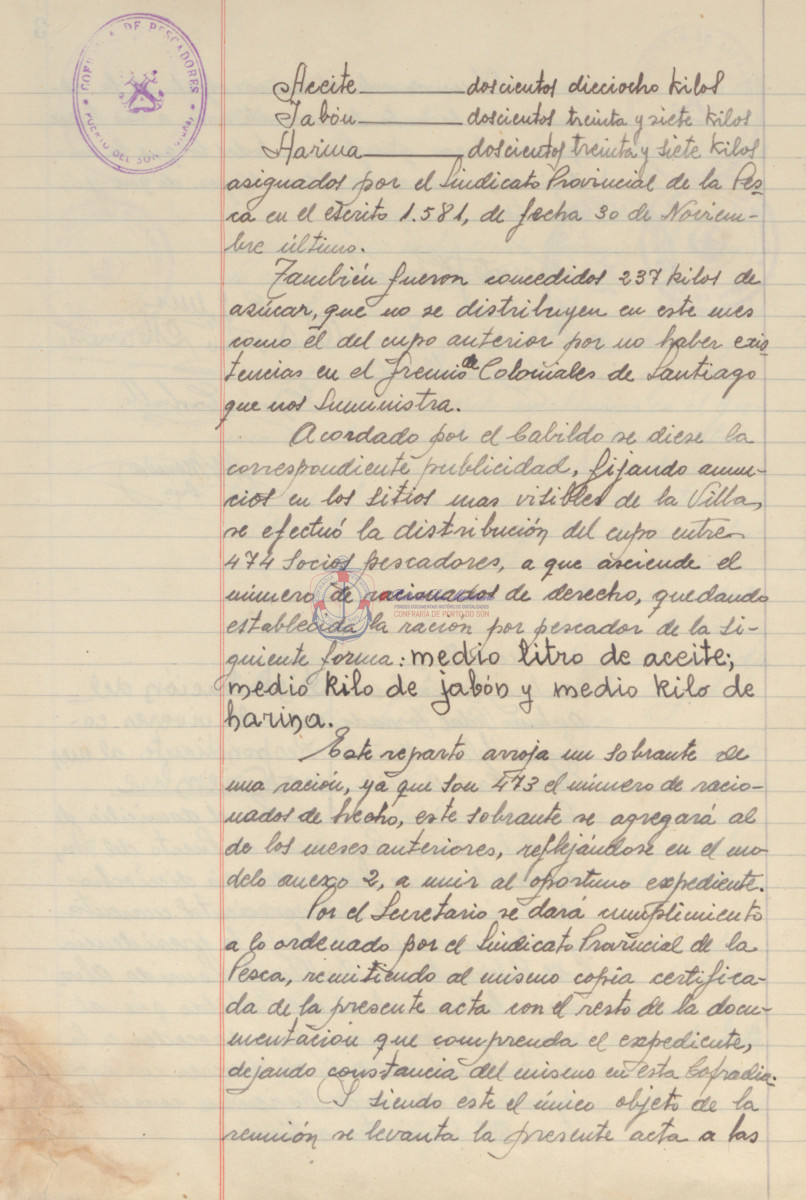 COFRADIA DE PESCADORES
PUERTO DEL SON
Aceite doscientos dieciocho kilos
Jabón doscientos treinta y siete kilos
Harina doscientos treinta y siete kilos
asignados por el Sindicato Provincial de la Pes-
ca en el escrito 1.581, de fecha 30 de Noviem-
bre último.
También fueron concedidos 237 kilos de
azúcar, que no se distribuyen en este mes
como él del cupo anterior por no haber exis-
tencias en el Gremio de Coloniales de Santiago
que nos suministra.
Acordado por el Cabildo se diese la
correspondiente publicidad, fijando anun-
cios en los sitios mas visibles de la Villa,
se efectuó la distribución del cupo entre
474 socios pescadores, a que asciende el
número de racionados de derecho, quedando
establecida la ración por pescador de la si-
guiente forma: medio litro de aceite;
medio kilo de jabón y medio kilo de
harina.
FONDOS DOCUMENTAIS HISTÓRICOS DIXITALIZADOS
CONFRARÍA DE PORTO DO SON
Este reparto arroja un sobrante de
una ración, ya que son 473 el número de racio-
nados de hecho, este sobrante se agregará al
de los meses anteriores, reflejándose en el mo-
delo anexo 2, a unir al oportuno expediente.
Por el Secretario se dará cumplimiento
a lo ordenado por el Sindicato Provincial de la
Pesca, remitiendo al mismo copia certifica-
da de la presente acta con el resto de la docu-
mentación que comprenda el expediente,
dejando constancia del mismo en esta Cofradia.
Y siendo este el único objeto de la
reunión se levanta la presente acta a las